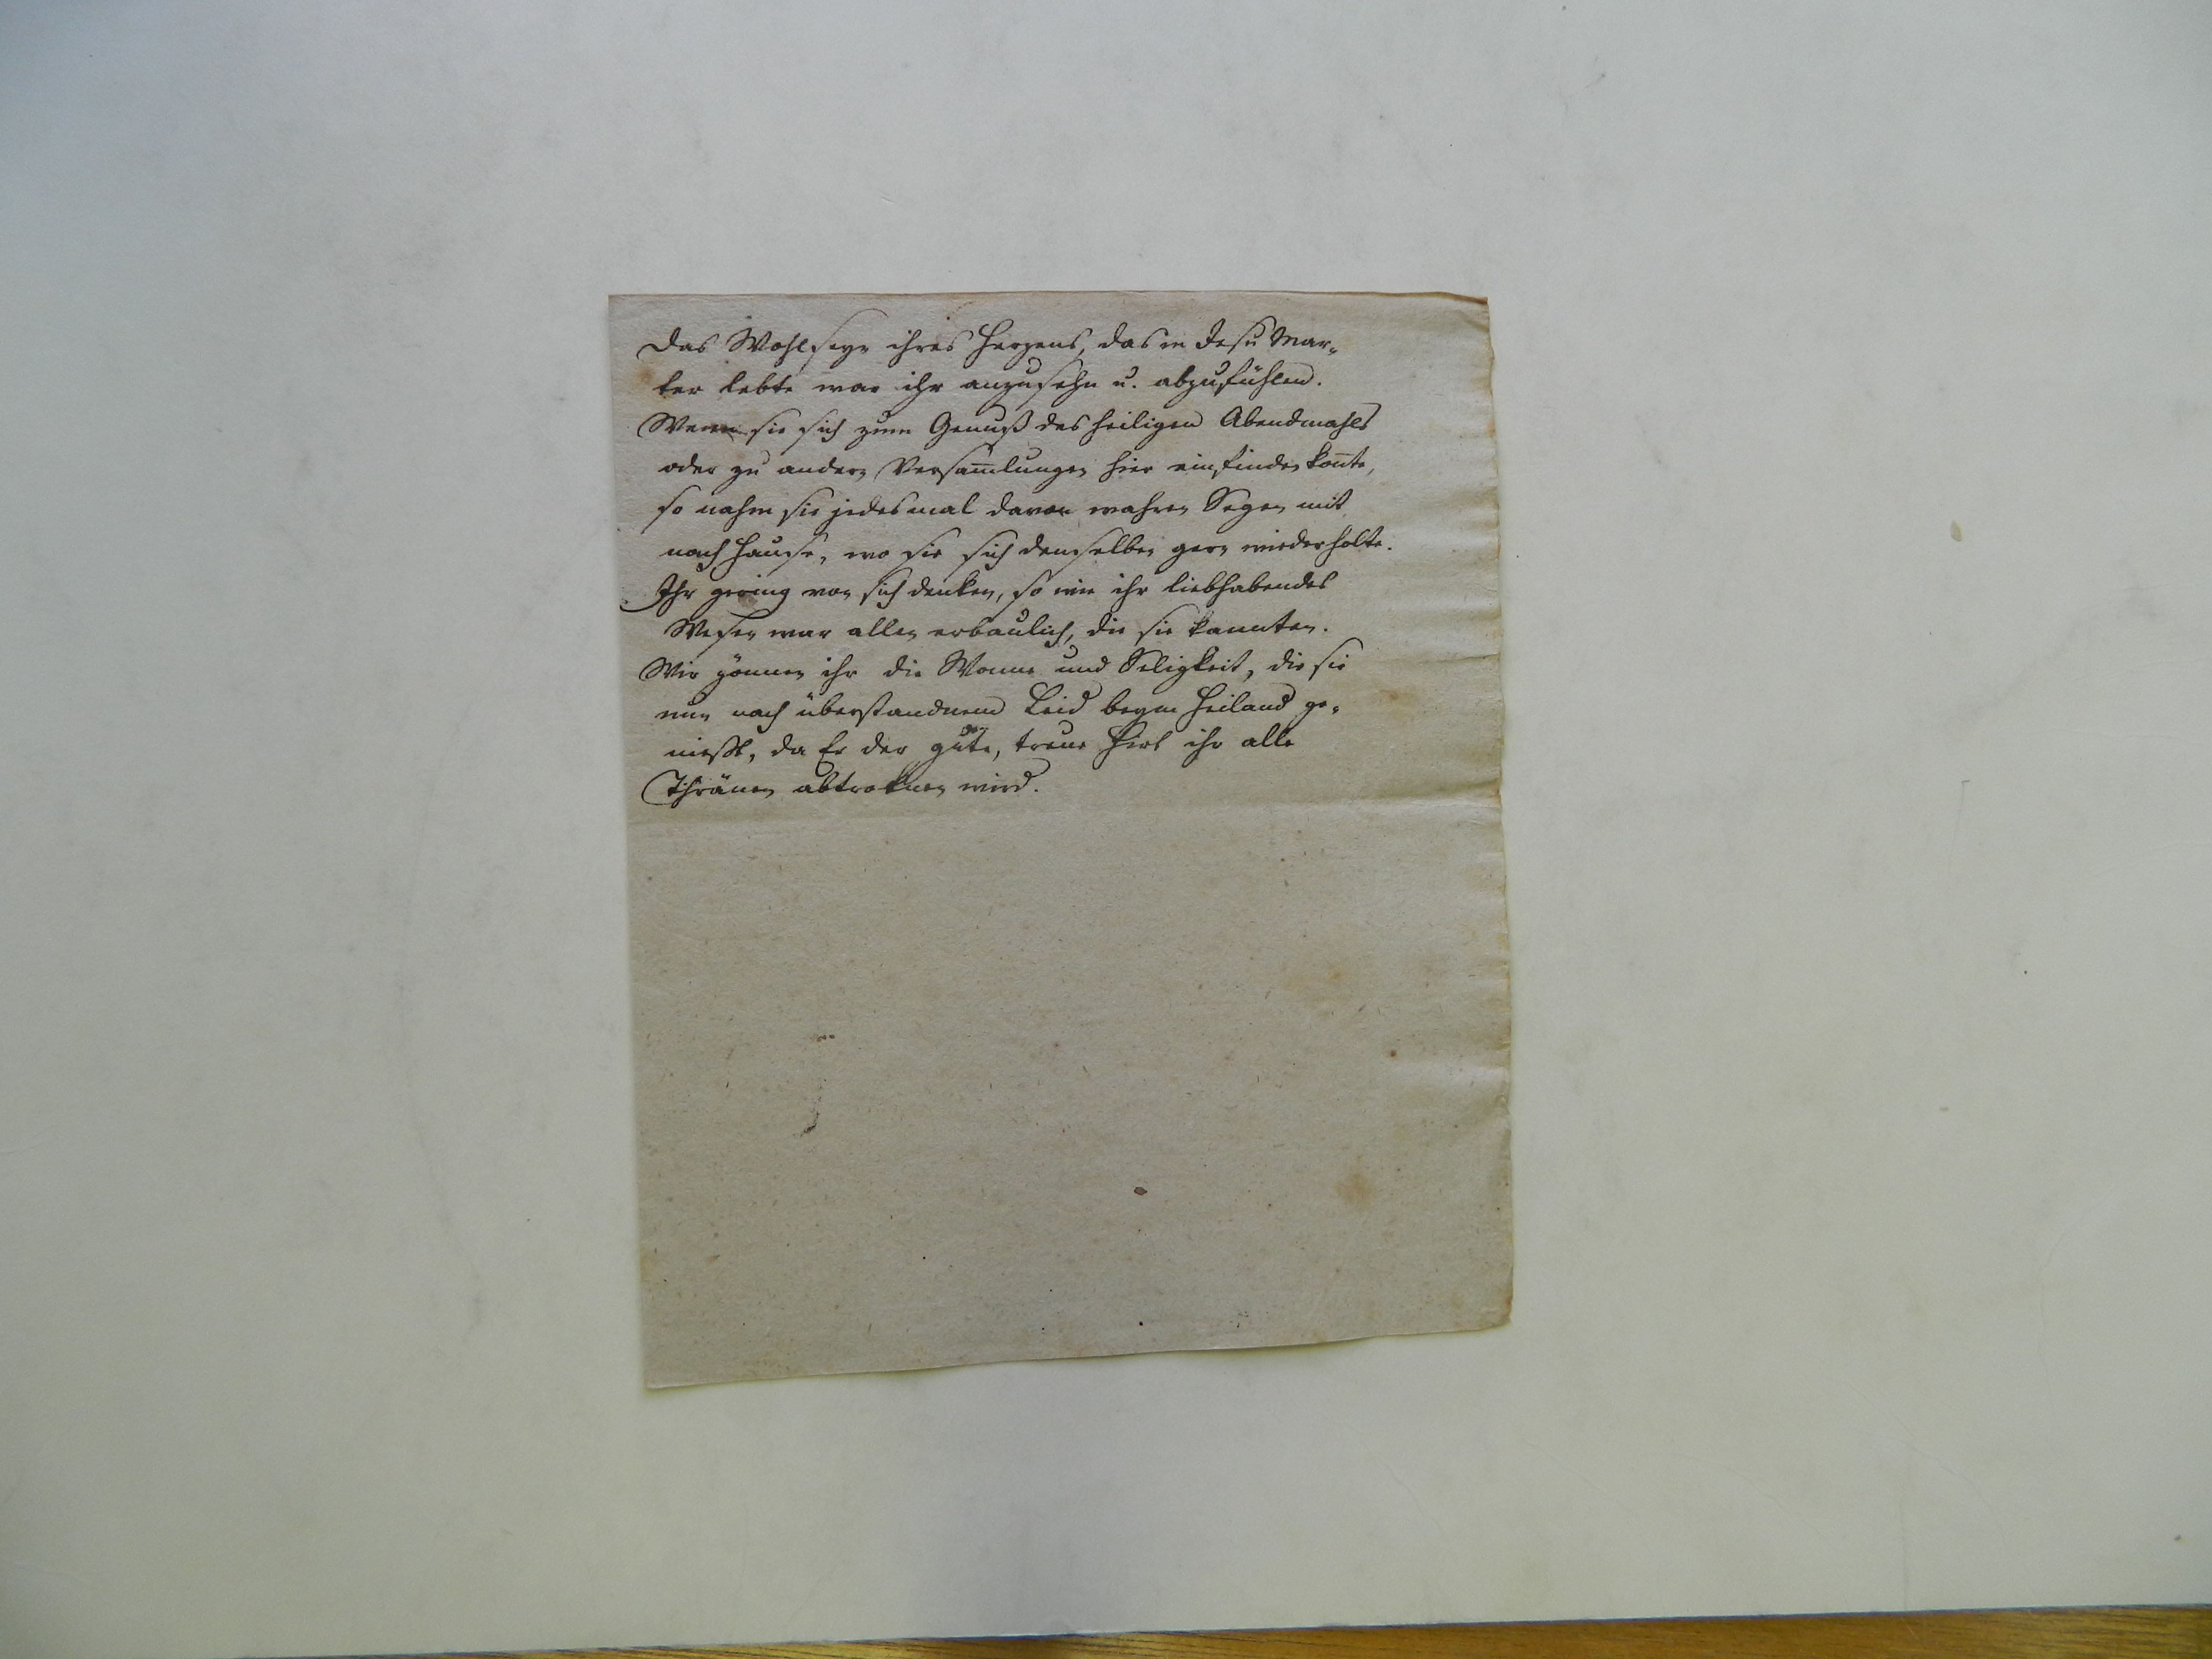 Das Wohlseyn ihres Herzens, das in Jesu Mar-
ter lebte war ihr anzusehn u. abzufühlen.
Wenn sie sich zum Genuß des heiligen Abendmahls
oder zu andern Versam̄lungen hier einfinden kon̄te,
so nahm sie jedesmal davon wahren Segen mit
nach Hause, wo sie sich denselben gern wiederholte.
Ihr gering von sich denken, so wie ihr liebhabendes
Wesen war allen erbaulich, die sie kannten.
Wir gönnen ihr die Wonne und Seligkeit, die sie
nun nach überstandnem Leid beym Heiland ge-
niesst, da Er der gute, treue Hirt ihr alle
Thränen abtroknen wird.